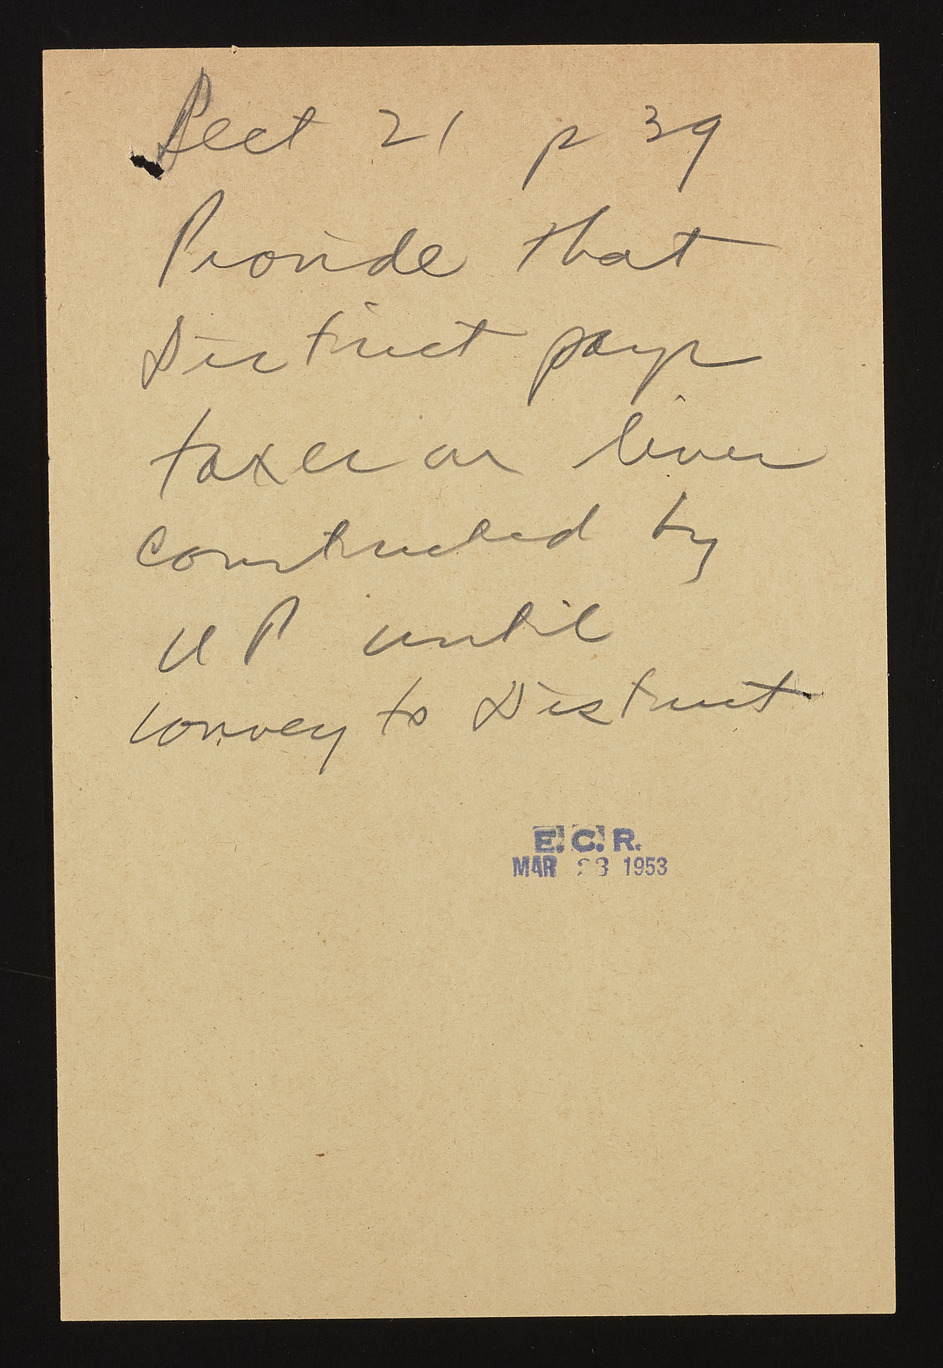 Sect 21 p 39
Provide that
District pays
taxes on lines
constructed by
UP until
convey to District
E.C.R.
MAR 23 1953